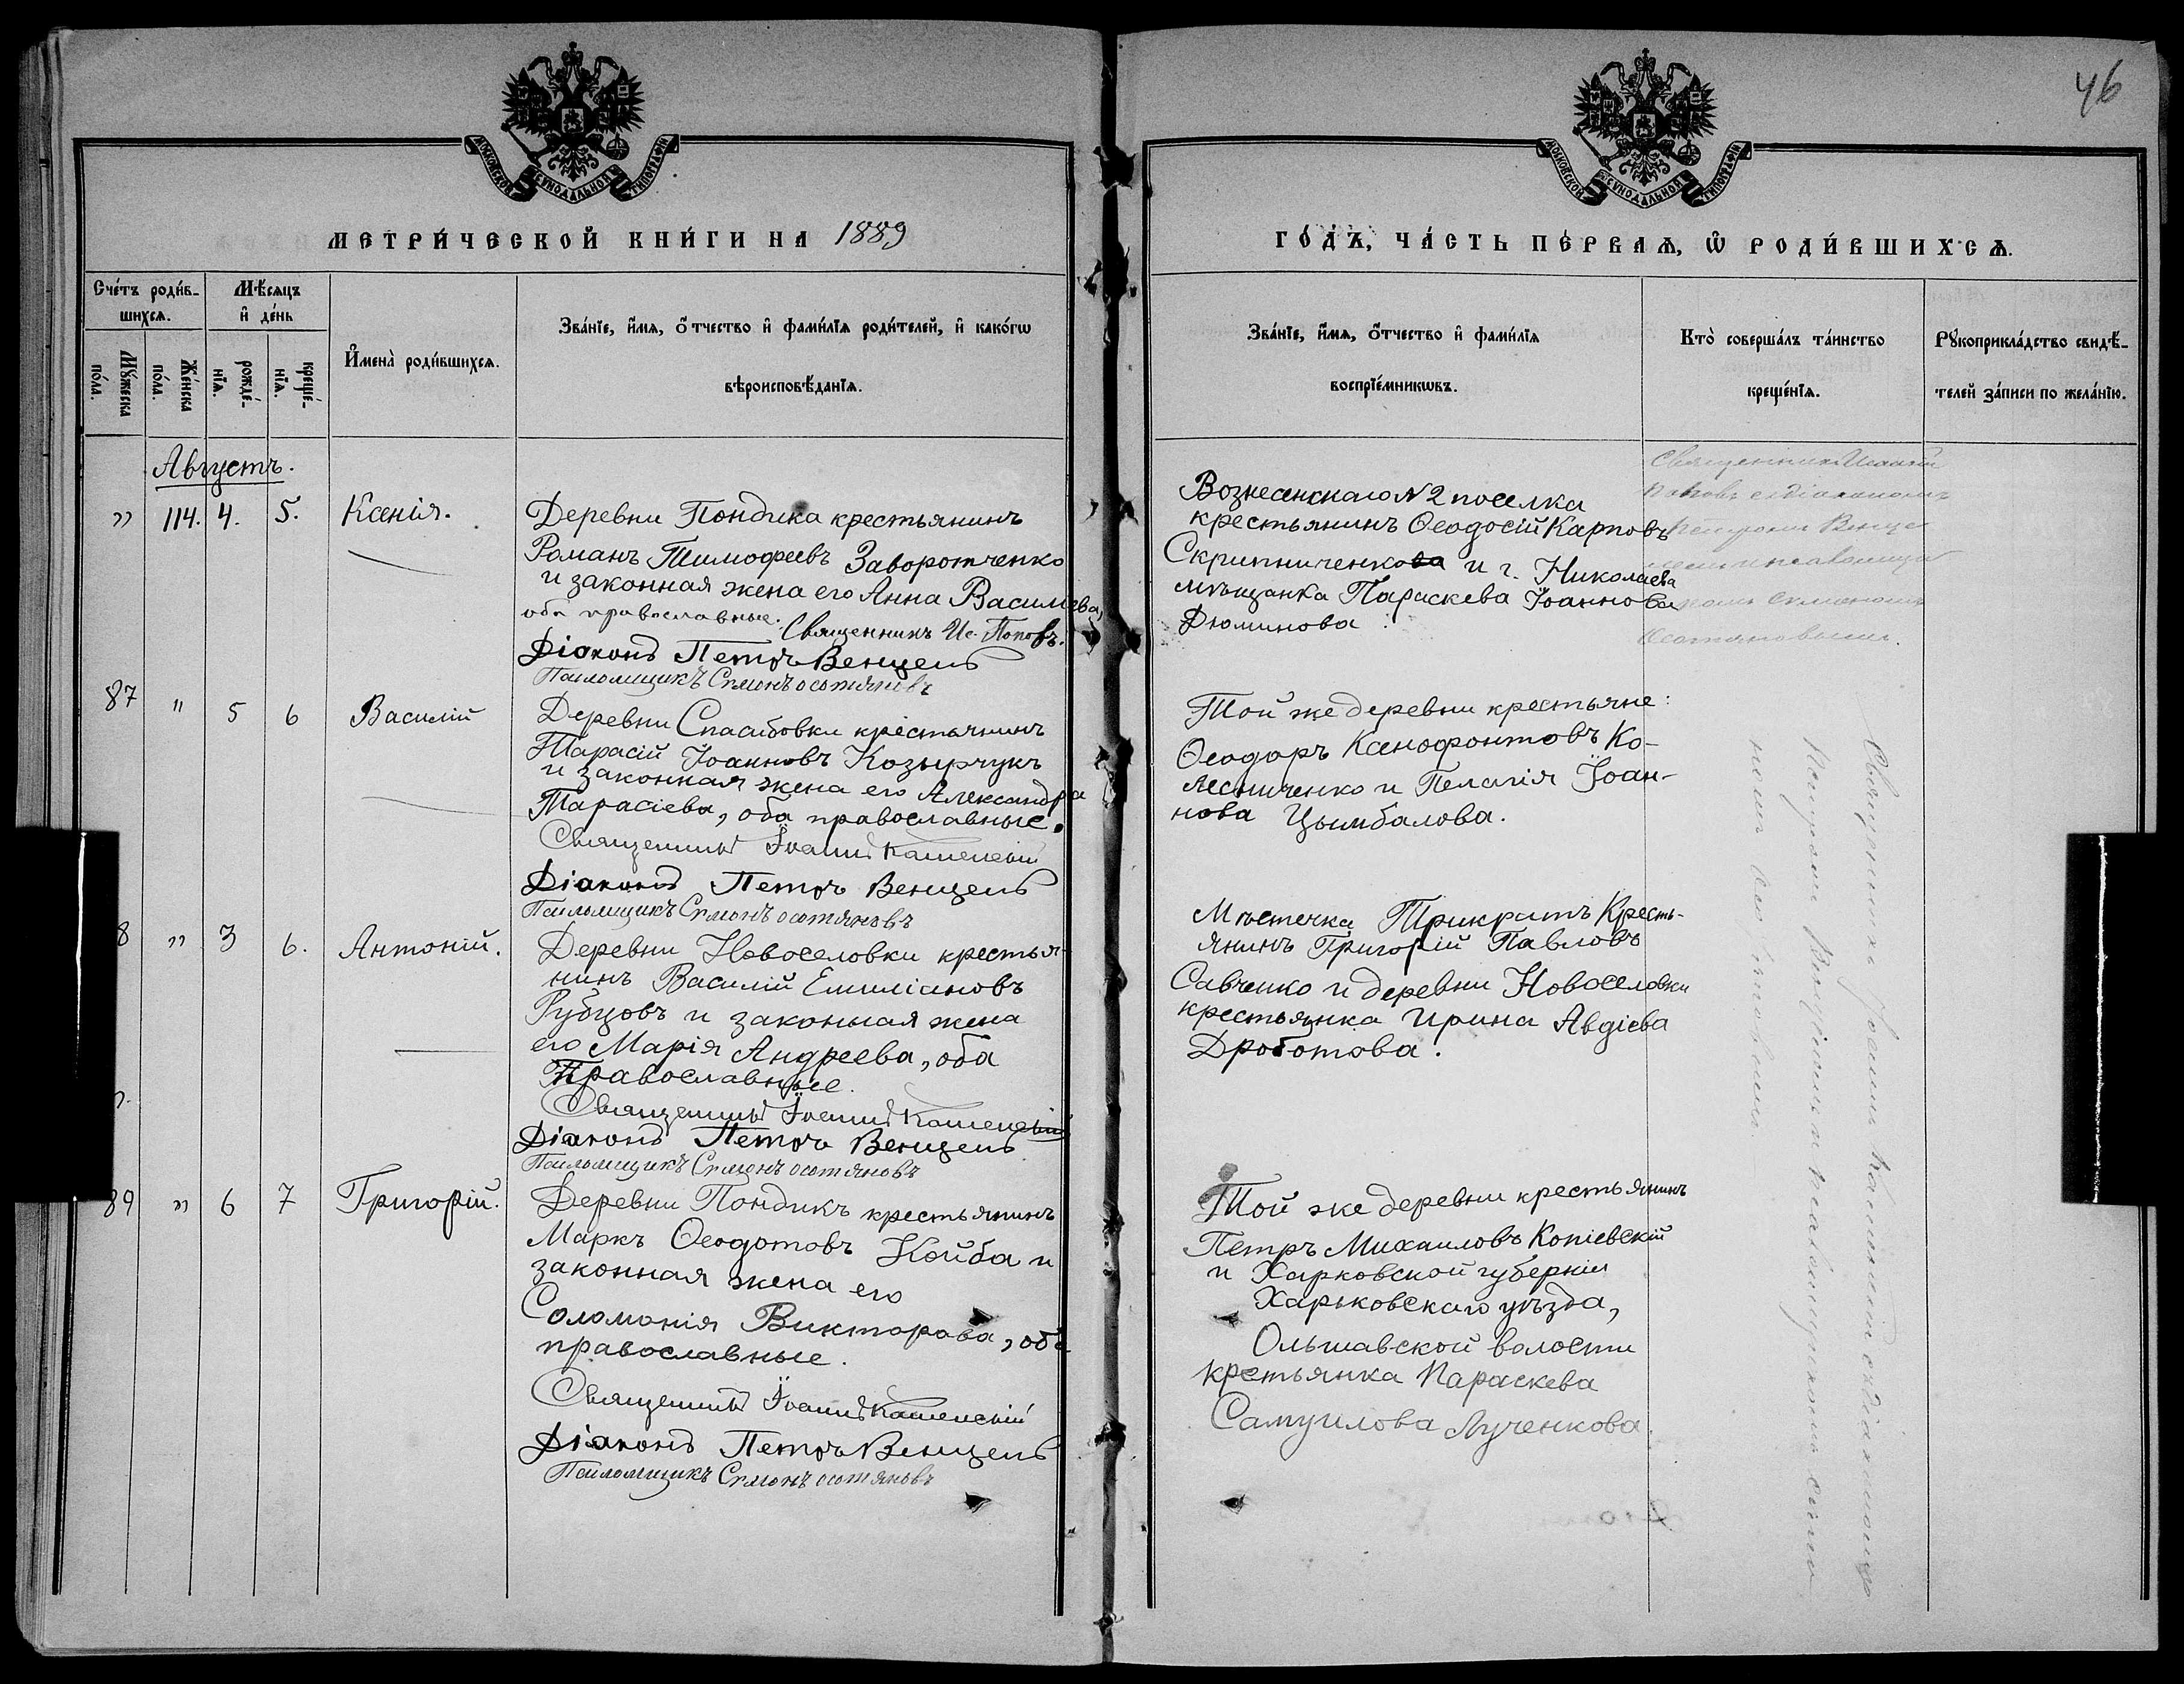 46
МОСКОВСКОЙ СѴНОДАЛЬНОЙ ТИПОГРАФІИ
МОСКОВСКОЙ СѴНОДАЛЬНОЙ ТИПОГРАФІИ
МЕТРИ́ЧЕСКОЙ КНИ́ГИ НА 1889
ГО́ДЪ, ЧА́СТЬ ПЕ́РВАѦ, Ѿ РОДИ́ВШИХСѦ.
Сче́тъ роди́в-
шихсѧ.
Мѣ́сѧцъ
и҆ де́нь
Мꙋ́жеска
по́ла.
Же́нска
по́ла.
рожде́-
нїѧ.
креще́-
нїѧ.
И҆мена̀ роди́вшихсѧ.
Зва́нїе, и҆́мѧ, ѻ҆́тчество и҆ фами́лїѧ роди́телей, и҆ како́гѡ
вѣроисповѣ́данїѧ.
Зва́нїе, и҆́мѧ, ѻ҆́тчество и҆ фами́лїѧ
воспрїе́мникѡвъ.
Кто̀ соверша́лъ та́инство
креще́нїѧ.
Рꙋкоприкла́дство свидѣ́-
телей за́писи по жела́нїю.
Августъ.
" 114. 4. 5. Ксенія.
Деревни Пондика крестьянинъ
Романъ Тимофеевъ Заворотченко
и законная жена его Анна Васильева,
оба православные. Священникъ Ис. Поповъ.
Діаконъ Петръ Венцель
Псаломщикъ Симонъ Осотяновъ
Вознесенскаго N 2 поселка
крестьянинъ Ѳеодосій Карповъ
Скрипниченкова и г. Николаева
мѣщанка Параскева Іоаннова
Дюминова
Священникъ Исаакій
Поповъ съ діакономъ
Петромъ Венце-
лемъ и псаломщи-
комъ Симономъ
Осотяновымъ.
87 " 5 6 Василій
Деревни Спасибовки крестьянинъ
Тарасій Іоанновъ Козырчукъ
и законная жена его Александра
Тарасіева, оба православные.
Священникъ Іоаннъ Каменскій
Діаконъ Петръ Венцель
Псаломщикъ Симонъ Осотяновъ
Той же деревни крестьяне:
Ѳеодоръ Ксенофонтовъ Ко-
лесниченко и Пелагія Іоан-
нова Цымбалова.
8 " 3 6. Антоній.
Деревни Новоселовки крестья-
нинъ Василій Емиліановъ
Рубцовъ и законная жена
его Марія Андреева, оба
Православные.
Священникъ Іоаннъ Каменскій
Діаконъ Петръ Венцель
Псаломщикъ Симонъ Осотяновъ
Мѣстечка Трикратъ Кресть-
янинъ Григорій Павловъ
Савченко и деревни Новоселовки
крестьянка Ирина Авдіева
Дроботова.
Священникъ Іоаннъ Каменскій съ діакономъ
Петромъ Венцелемъ и псаломщикомъ Симо-
номъ Осотяновымъ
89 " 6 7 Григорій.
Деревни Пондикъ крестьянинъ
Маркъ Ѳеодотовъ Койба и
законная жена его
Соломонія Викторова, оба
православные.
Священникъ Іоаннъ Каменскій
Діаконъ Петръ Венцель
Псаломщикъ Симонъ Осотяновъ
Той же деревни крестьянинъ
Петръ Михаиловъ Копіевскій
и Харковской губерніи
Харьковскаго уѣзда,
Ольшавской волости
крестьянка Параскева
Самуилова Лученкова.